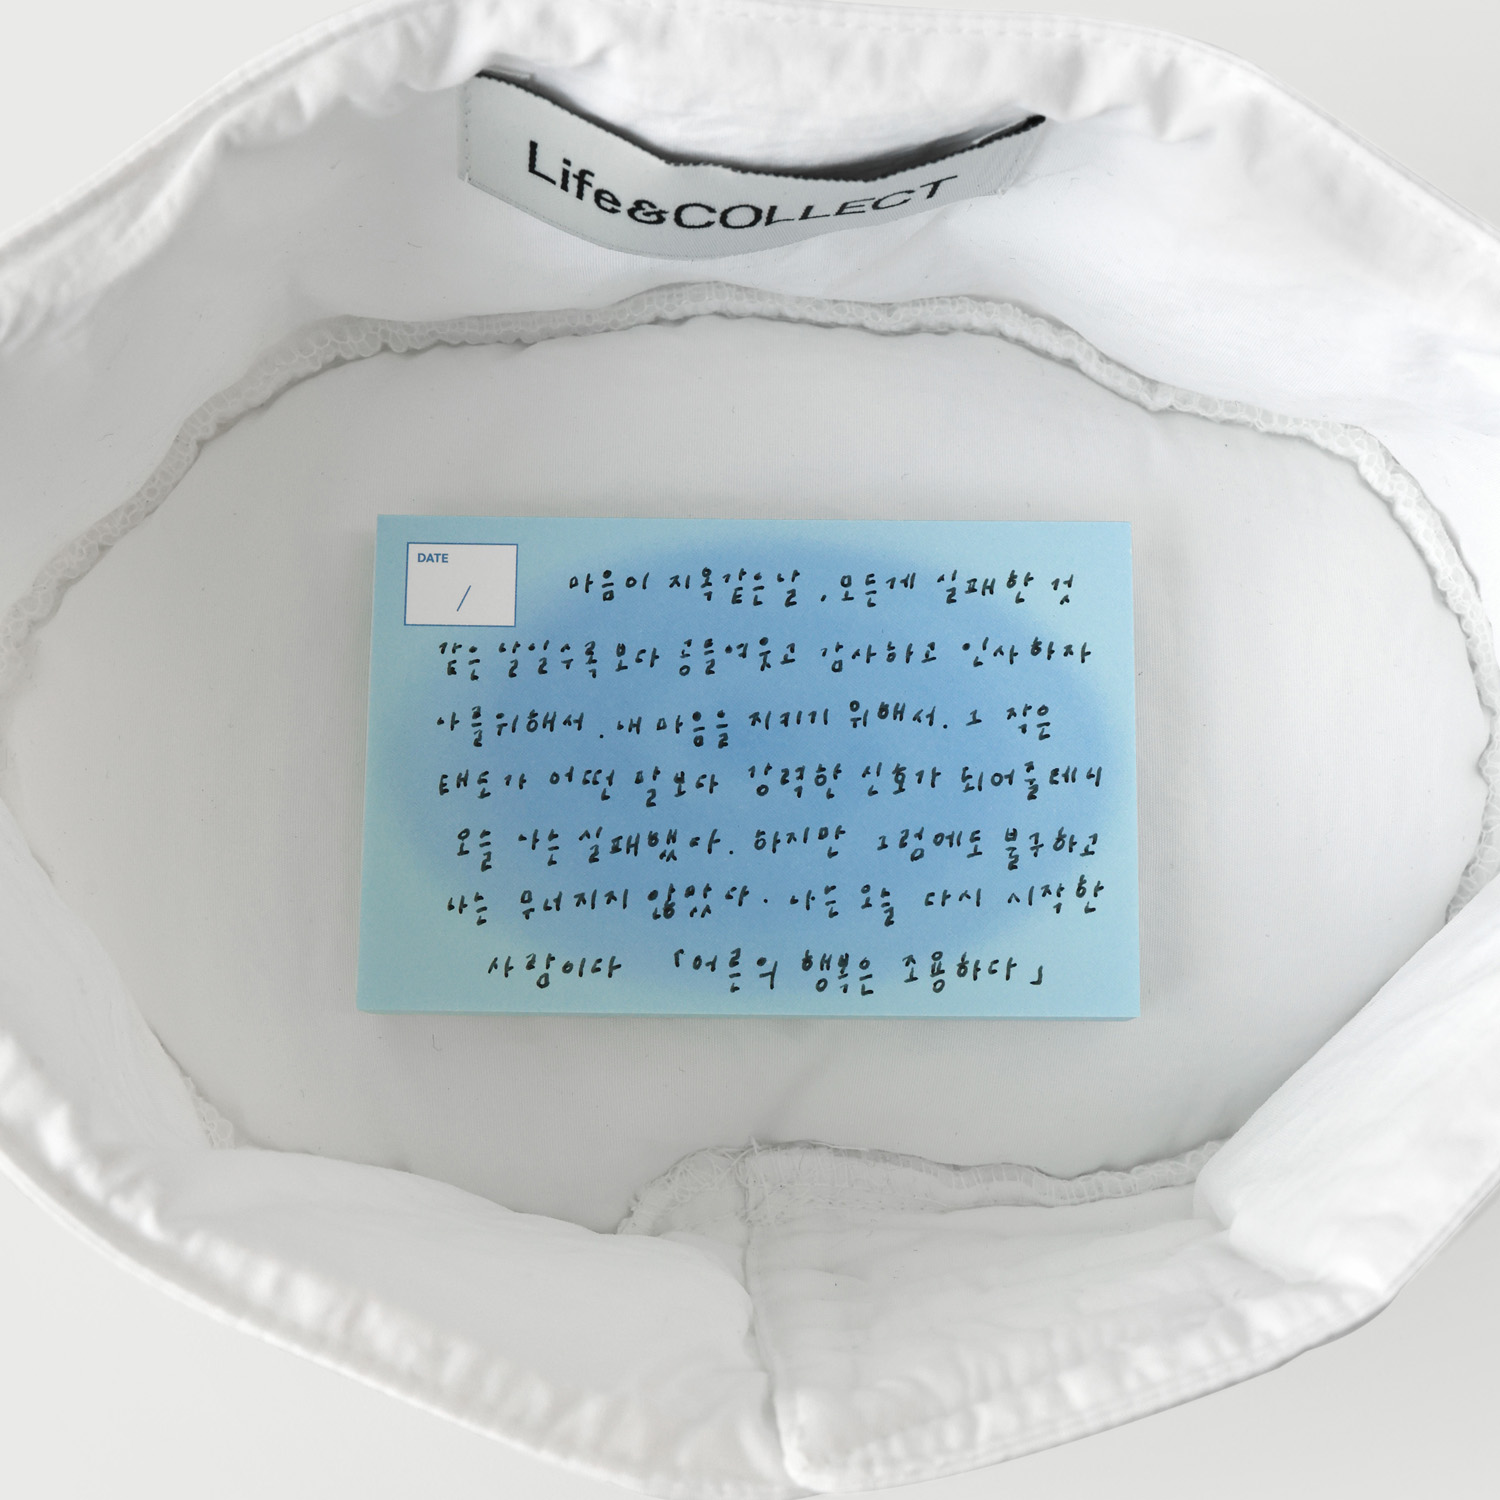 Life&COLLECT
DATE
/
마음이 지옥같은날, 모든게 실패한 것
같은 날일수록 보다 공들여웃고 감사하고 인사하자
나를위해서. 내 마음을 지키기 위해서. 그 작은
태도가 어떤 말보다 강력한 신호가 되어줄테니
오늘 나는 실패했다. 하지만 그럼에도 불구하고
나는 무너지지 않았다. 나는 오늘 다시 시작한
사람이다 「어른의 행복은 조용하다」